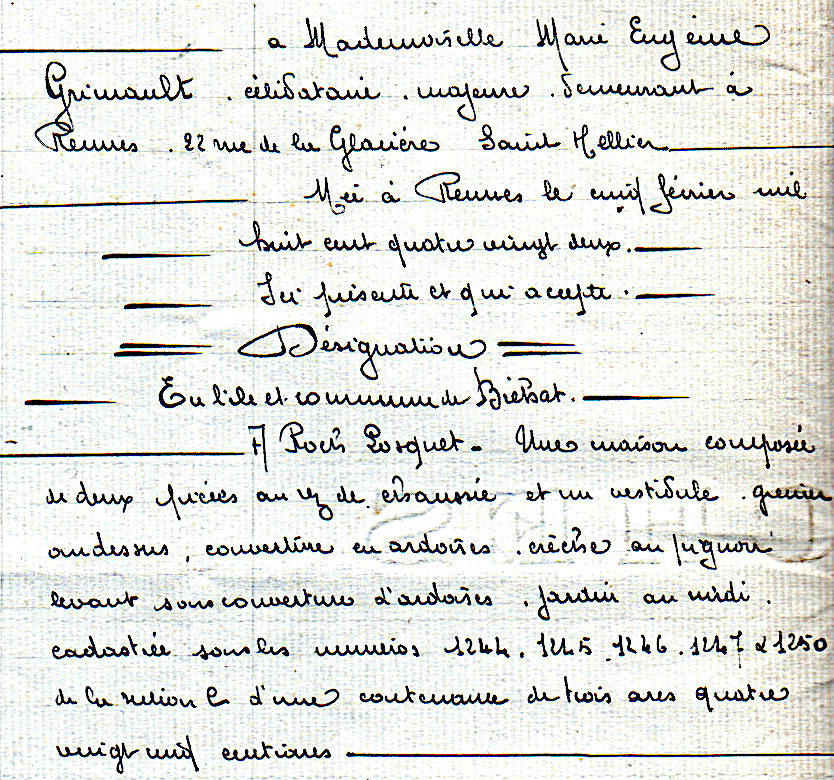 a Mademoiselle Marie Eugénie
Grimault, célibataire, majeure, demeurant à
Rennes, 22 rue de la Glacière Saint Hellier
Née à Rennes le neuf février mil
huit cent quatre vingt deux.
Ici présente et qui accepte.
Désignation
En l'ile et commune de Bréhat.
A Roch Losquet - Une maison composée
de deux pièces au rez de chaussée et un vestibule, grenier
audessus, couverture en ardoises, crèche au pignon
levant sous couverture d'ardoises, jardin au midi.
cadastrée sous les numéros 1244, 1245, 1246, 1247 & 1250
de la section C d'une contenance de trois ares quatre
vingt neuf centiares